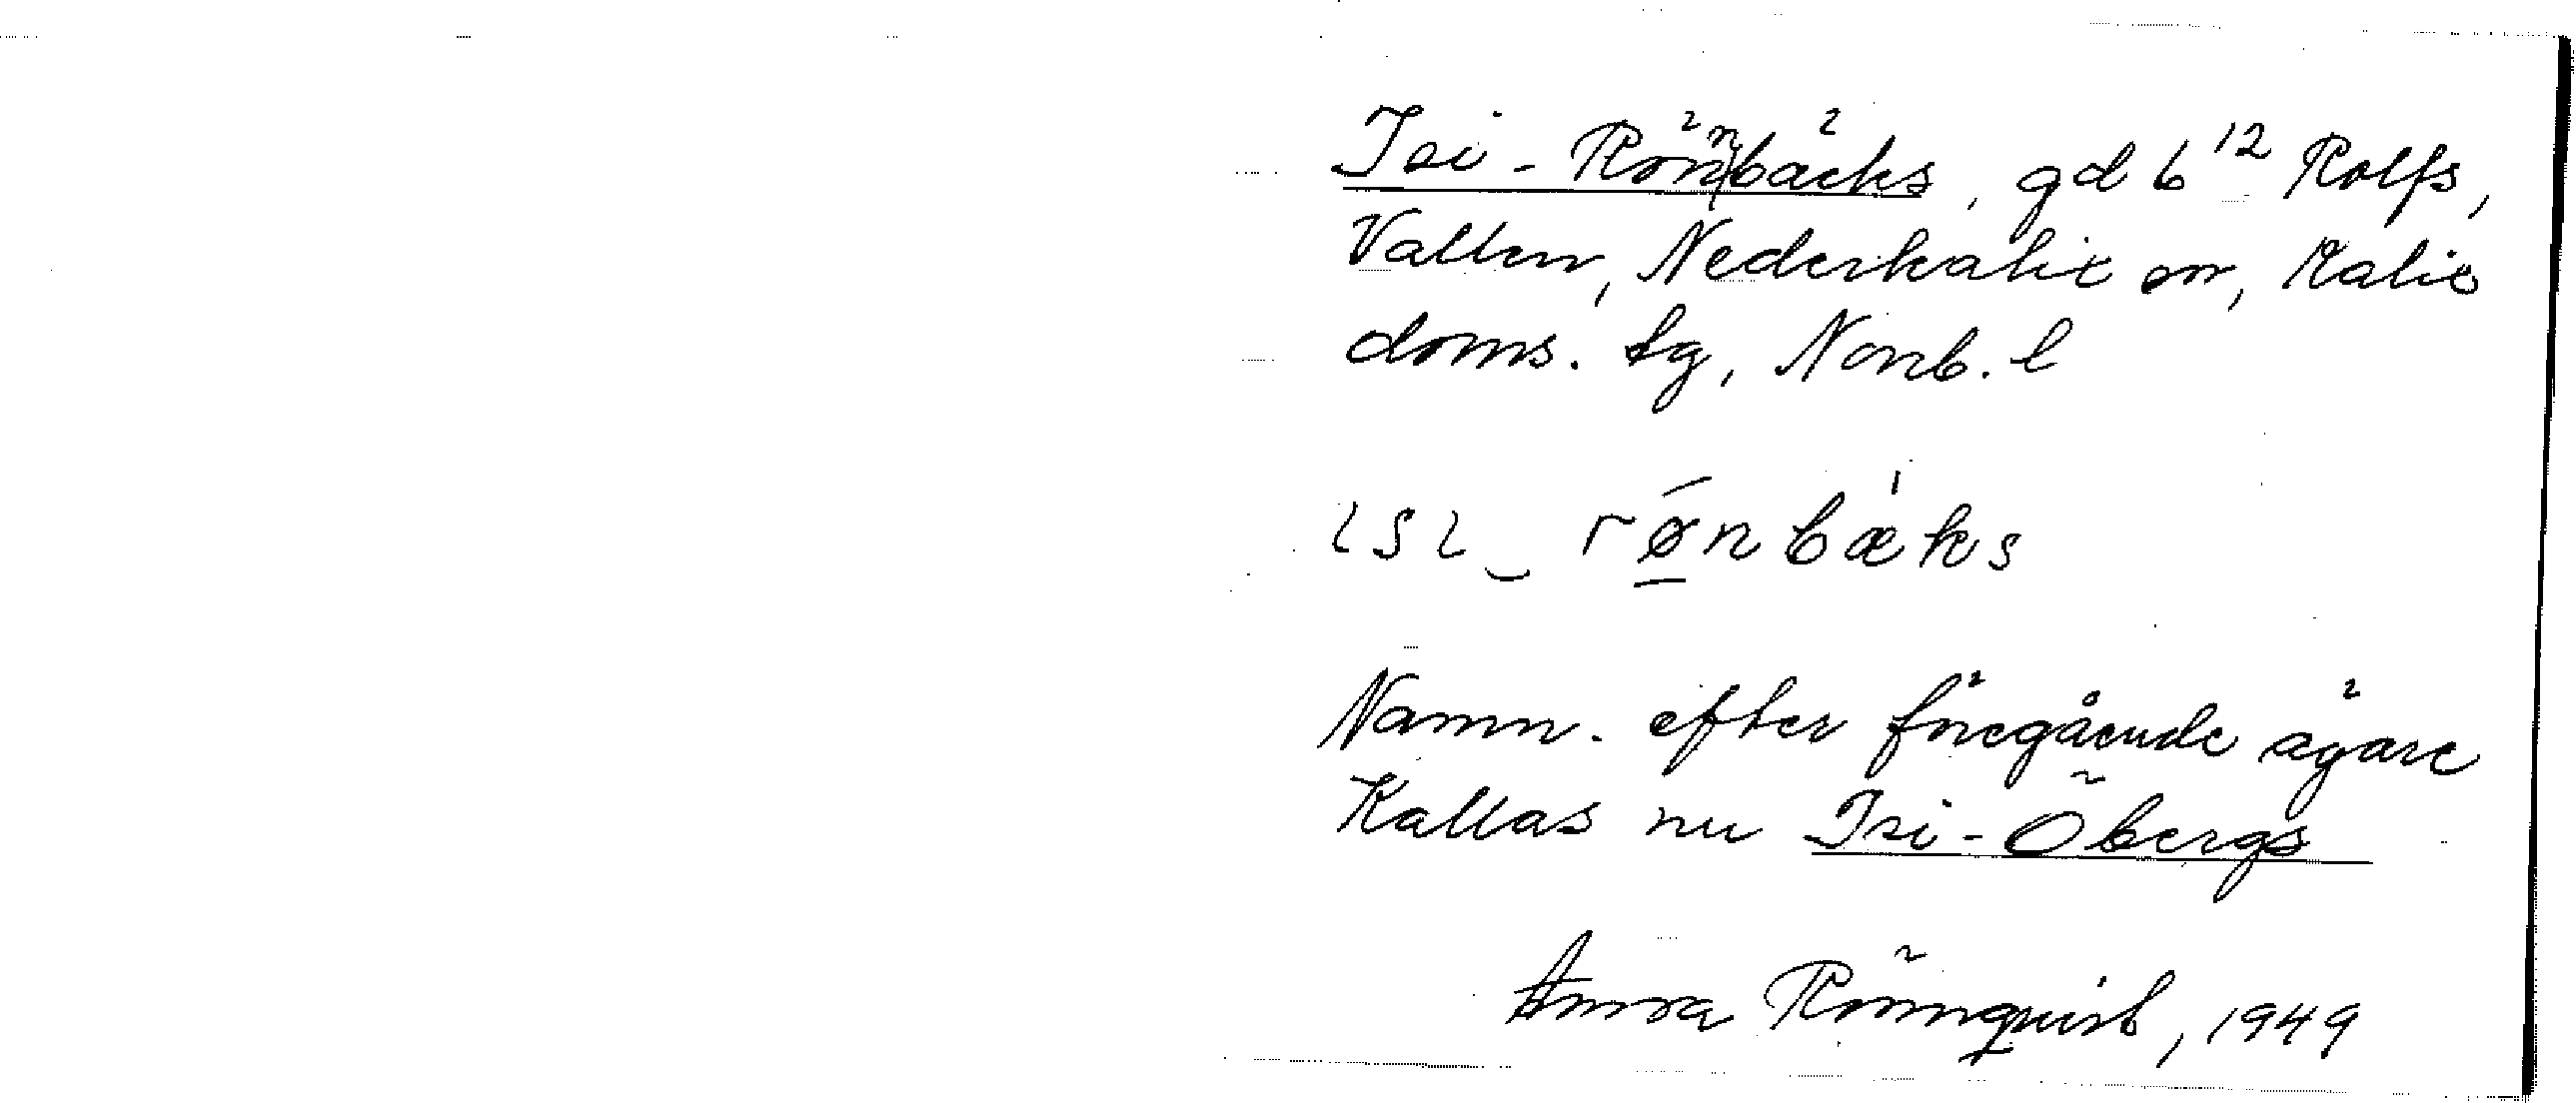 Isi-Rönnbäcks, gd b 12 Rolfs,
Vallen, Nederkalix sn, Kalix
doms. tg, Norrb. l
ɩsɩ‿ rø̄́nbæ̍ks
Namn. efter föregående ägare
Kallas nu Isi-Öbergs
Anna Rönnqvist, 1949